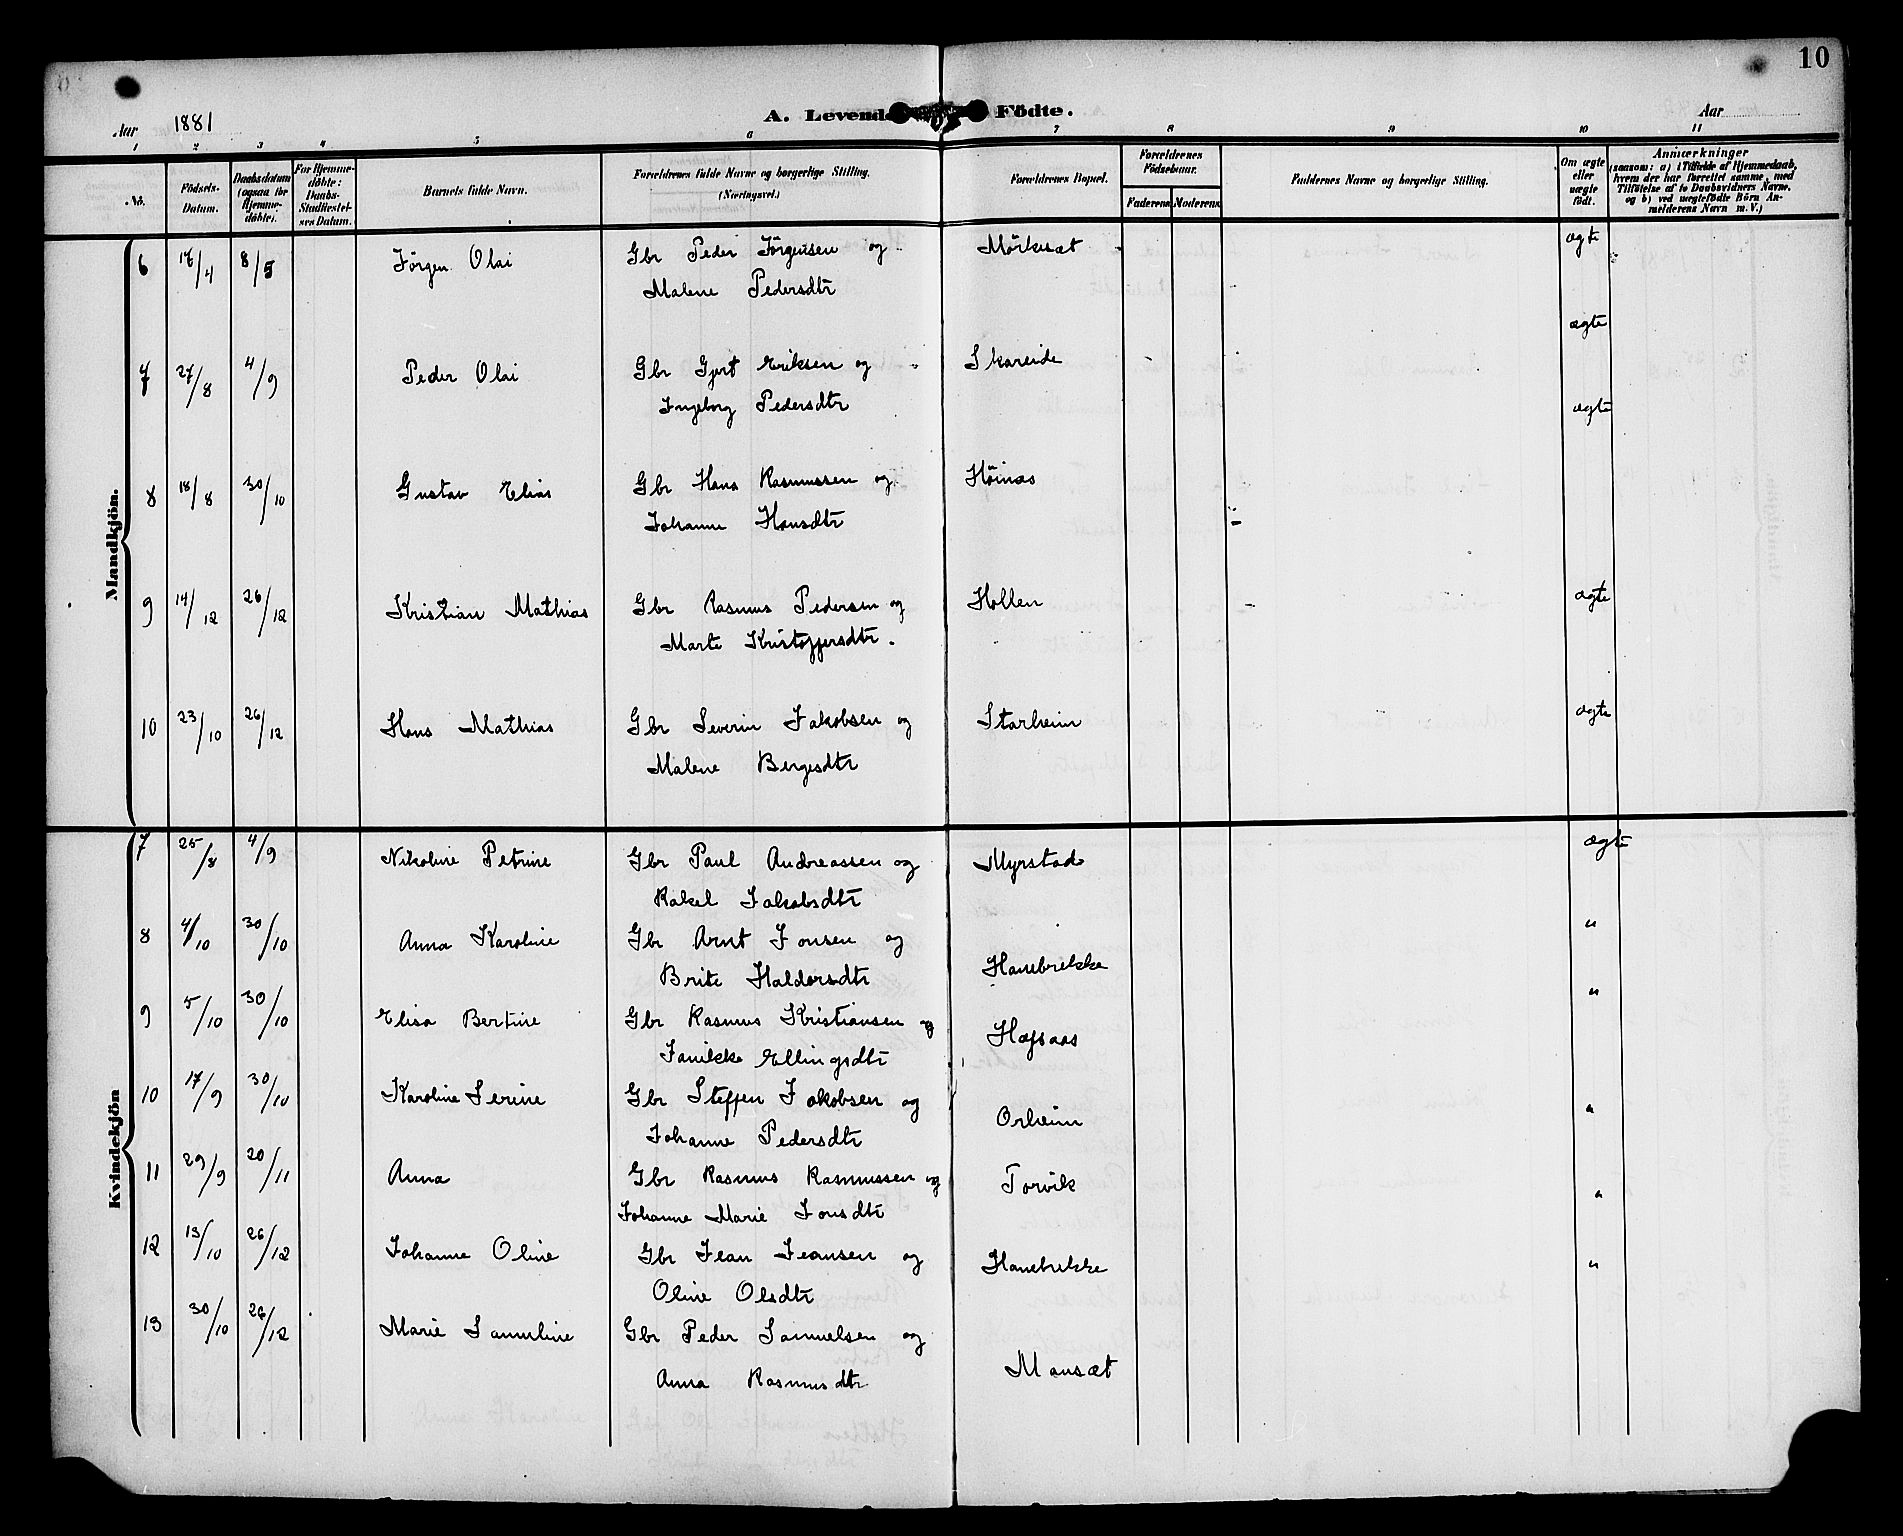 10
Aar 1881 A. Levende Födte. Aar
1 2 3 4 5 6 7 8 9 10 11
No. Födsels-Datum. Daabsdatum (ogsaa for Hjemme-döbte). For Hjemme-döbte: Daabs-Stadfæstel-ses Datum. Barnets fulde Navn. Forældrenes fulde Navne og borgerlige Stilling. (Næringsvei.) Forældrenes Bopæl. Forældrenes Födselsaar. Faderens Moderens Faddernes Navne og borgerlige Stilling. Om ægte eller uægte födt. Anmærkninger (saasom: a) i Tilfælde af Hjemmedaab, hvem der har forrettet samme, med Tilföielse af to Daabsvidners Navne, og b) ved uægtefödte Börn An-melderens Navn m. V.)
Mandkjön.
6 8/5 Jörgen Olai Gbr Peder Jörgensen og Mörkesæt ægte
Malene Pedersdtr
ægte
7 27/8 4/9 Peder Olai Gbr Gjert Eriksen og Skareide
Ingeborg Pedersdtr ægte
8 18/8 30/10 Gustav Elias Gbr Hans Rasmussen og Höinæs
Johanne Hansdtr
9 14/12 26/12 Kristian Mathias Gbr Rasmus Pedersen og Hollen ægte
Marte Kristoffersdtr.
10 23/10 26/12 Hans Mathias Gbr Severin Jakobsen og Starheim ægte
Malene Bergesdtr
Kvindekjön
7 25/8 4/9 Nikoline Petrine Gbr Paul Andreassen og Myrstad ægte
Rakel Jakobsdtr
8 4/10 30/10 Anna Karoline Gbr Arnt Jonsen og "
Brite Haldorsdtr Hanebrekke
9 5/10 30/10 Elisa Bertine Gbr Rasmus Kristiansen og "
Janikke Ellingsdtr Hafsaas
10 17/9 30/10 Karoline Serine Gbr Steffen Jakobsen og Orheim "
Johanne Pedersdtr
11 29/9 20/11 Anna Gbr Rasmus Rasmussen og Torvik "
Johanne Marie Jonsdtr
12 13/10 26/12 Johanne Oline Gbr Jean Jeansen og Hanebrekke "
Oline Olsdtr
13 30/10 26/12 Marie Samuline Gbr Peder Samuelsen og
Anna Rasmusdtr Mansæt